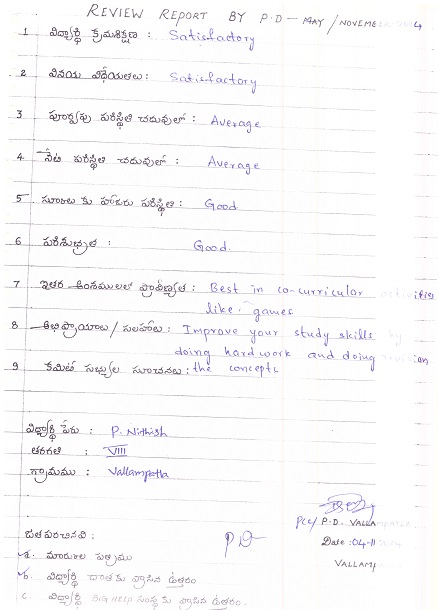 REVIEW REPORT BY P.D - MAY / NOVEMBER 2014
1 విద్యార్థి క్రమశిక్షణ : Satisfactory
2 వినయ విధేయతలు : Satisfactory
3 పూర్వపు పరిస్థితి చదువులో : Average
4 నేటి పరిస్థితి చదువులో : Average
5 స్కూలు కు హాజరు పరిస్థితి : Good
6 పరిశుభ్రత : Good.
7 ఇతర అంశములలో ప్రావీణ్యత : Best in co-curricular activities
like : games
8 అభిప్రాయాలు / సలహాలు : Improve your study skills by
doing hard work and doing revision
9 కమిటీ సభ్యుల సూచనలు : the concepts
విద్యార్థి పేరు : P. Nithish
తరగతి : VIII
గ్రామము : Vallampatla
PCC/ P.D. VALLAMPATLA
జతపరచినవి : P D
Date : 04-11
a. మార్కుల పత్రము
VALLAMP
b. విద్యార్థి దాతకు వ్రాసిన ఉత్తరం
c. విద్యార్థి BIG HELP సంస్థకు వ్రాసిన ఉత్తరం.